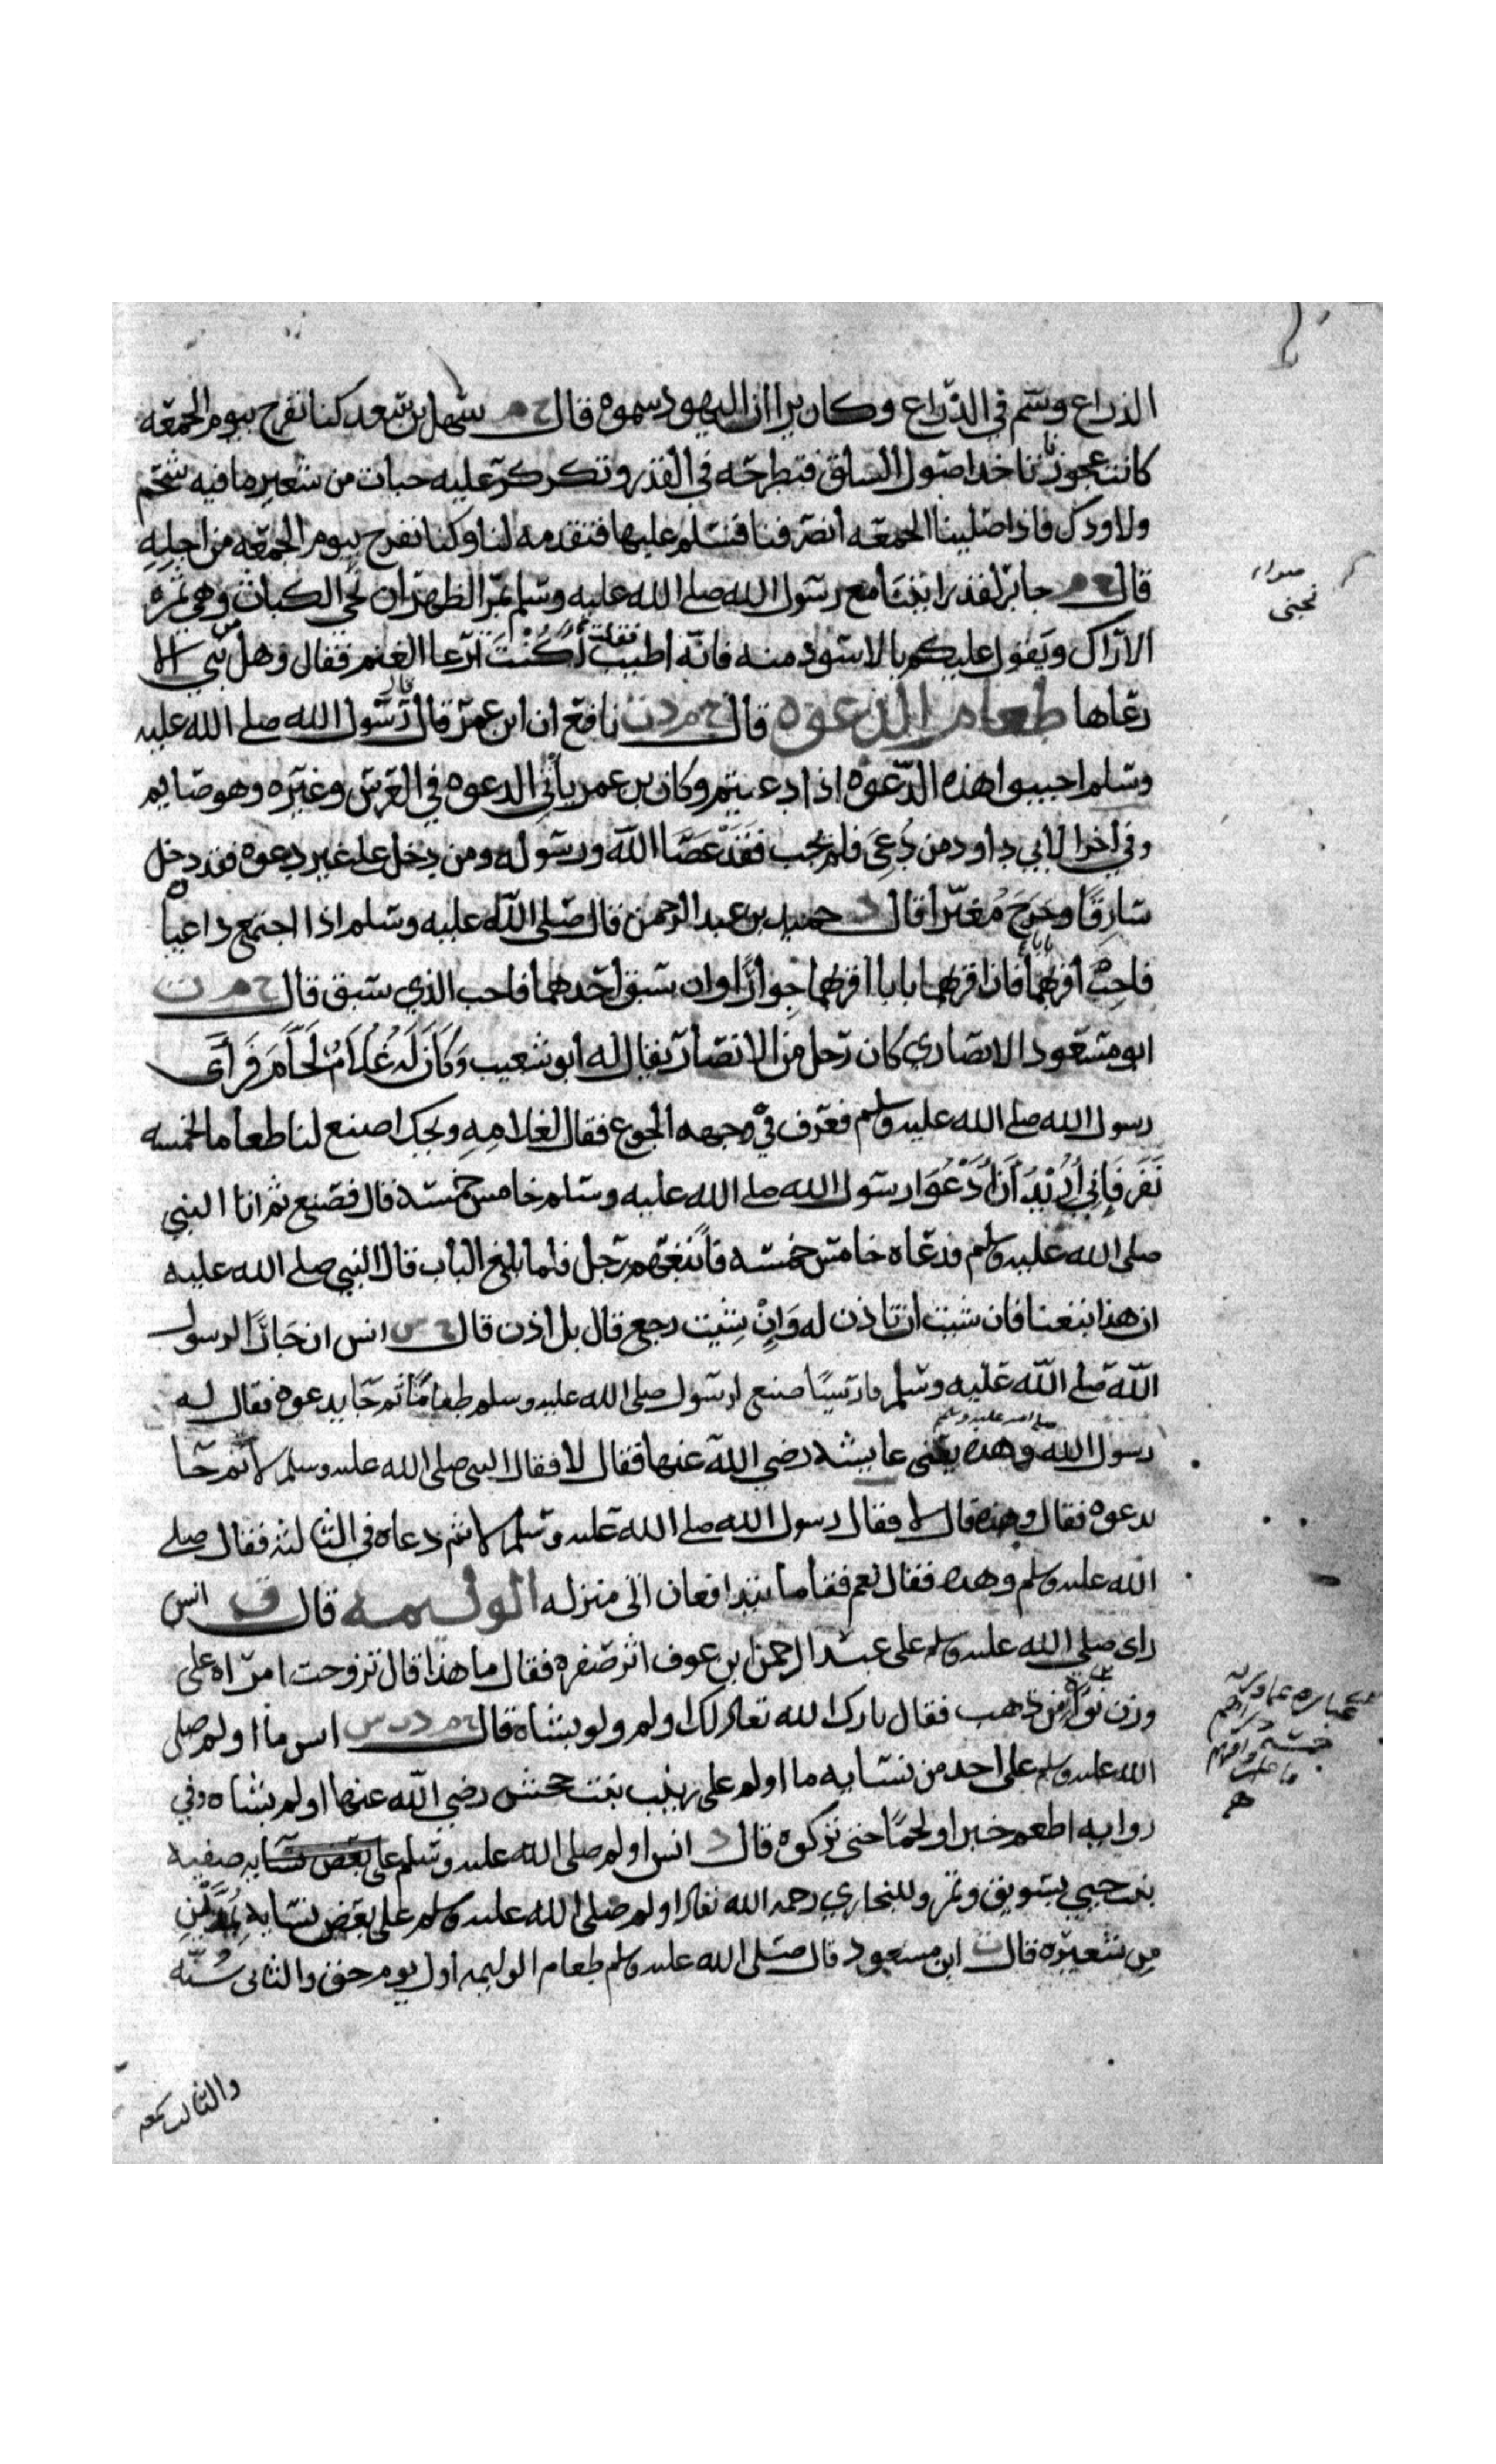 الذراع وسم في الذراع وكان يرا ان اليهود سموه قال خ م سهل بن سعد كنا نفرح بيوم الجمعه
كانت عجوزنا تاخذ اصول السلق فتطرحه في القدر وتكركر عليه حبات من شعير ما فيه شحم
ولا ودك فاذا صلينا الجمعه انصرفنا فنسلم عليها فتقدمه لنا وكنا نفرح بيوم الجمعه من اجله
قال خ م جابر لقد رايتنا مع رسول الله صلى الله عليه وسلم بمر الظهران نجني الكباث وهي ثمرة
الاراك ويقول عليكم بالاسود منه فانه اطيب فقلت أكنت ترعا الغنم فقال وهل من نبي الا
رعاها طعام الدعوه قال خ م د ت نافع ان ابن عمر قال قال رسول الله صلى الله عليه
وسلم اجيبوا هذه الدعوه اذا دعيتم وكان بن عمر ياتي الدعوه في العرس وغيره وهو صايم
وفي اخرا لابي داود من دُعِيَ فلم يجب فقد عصا الله ورسوله ومن دخل على غير دعوه فقد دخل
سارقًا وخرج مُغيرًا قال د حميد بن عبد الرحمن قال صلى الله عليه وسلم اذا اجتمع داعيان
فاجب اقربهما بابا فان اقربهما بابا اقربهما جوارًا وان سبق احدهما فاجب الذي سبق قال خ م ت
ابو مسعود الانصاري كان رجل من الانصار يقال له ابو شعيب وَكَانَ لَهُ غُلَامٌ لَحَّامٌ فَرَأَى
رسول الله صلى الله عليه وسلم فعرف في وجهه الجوع فقال لغلامِهِ ويحك اصنع لنا طعاما لخمسه
نَفَر فَإِنِي أُرِيْدُ أَنْ أَدْعُوَا رسول الله صلى الله عليه وسلم خامس خمسه قال فصنع ثم اتا النبي
صلى الله عليه وسلم فدعاه خامس خمسه فاتبعهم رجل فلما بلغ الباب قال النبي صلى الله عليه
ان هذا تبعنا فان شيت ان تاذن له وَاِنْ شِيْت رجع قال بل اذن قال م س انس ان جارًا لرسول
الله صلى الله عليه وسلم فارسيًا صنع لرسول صلى الله عليه وسلم طعامًا ثم جا يدعوه فقال له
رسول الله صلى الله عليه وسلم وهذه يعني عايشه رضي الله عنها فقال لا فقال النبي صلى الله عليه وسلم لا ثم جا
يدعوه فقال وهذه قال لا فقال رسول الله صلى الله عليه وسلم لا ثم دعاه في الثالثه فقال صلى
الله عليه وسلم وهذه فقال نعم فقاما يتدافعان اتى منزله الوليمه قال ق انس
راى صلى الله عليه وسلم على عبد الرحمن ابن عوف اثر صفره فقال ما هذا قال تزوجت امراه على
وزن نواة من ذهب فقال بارك الله تعالى لك اولم ولو بشاه قال خ م د س انس ما اولم صلى
الله عليه وسلم على احد من نسايه ما اولم على زينب بنت جحش رضي الله عنها اولم بشاه وفي
روايه اطعم خبزا ولحمًا حتى تركوه قال د انس اولم صلى الله عليه وسلم على بعض نسايه صفيه
بنت حيي بسويق وتمر وللبخاري رحمه الله تعالى اولم صلى الله عليه وسلم على بعض نسايه بمُدَّيْنِ
مِن شعيره قال ت ابن مسعود قال صلى الله عليه وسلم طعام الوليمه اول يوم حق والثاني سُنَّه
والثالث سمعه
صوابه
نجني
خمسة دراهم